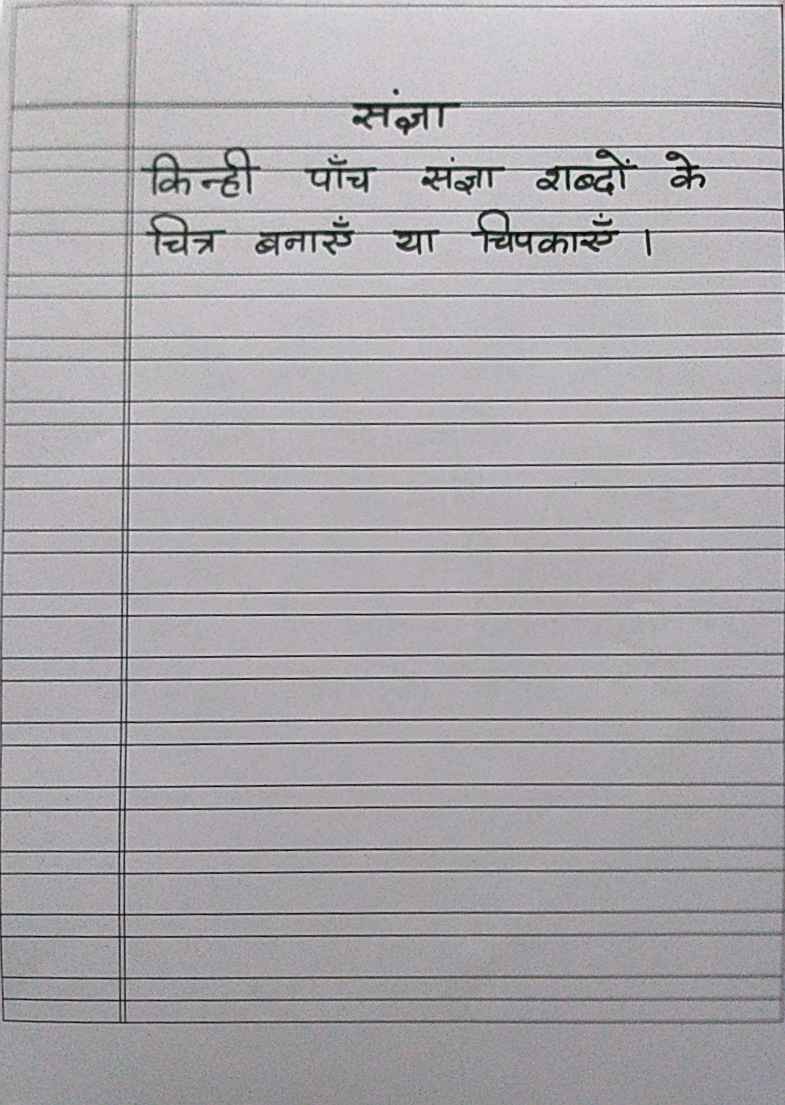 संज्ञा
किन्ही पाँच संज्ञा शब्दों के
चित्र बनाएँ या चिपकाएँ ।